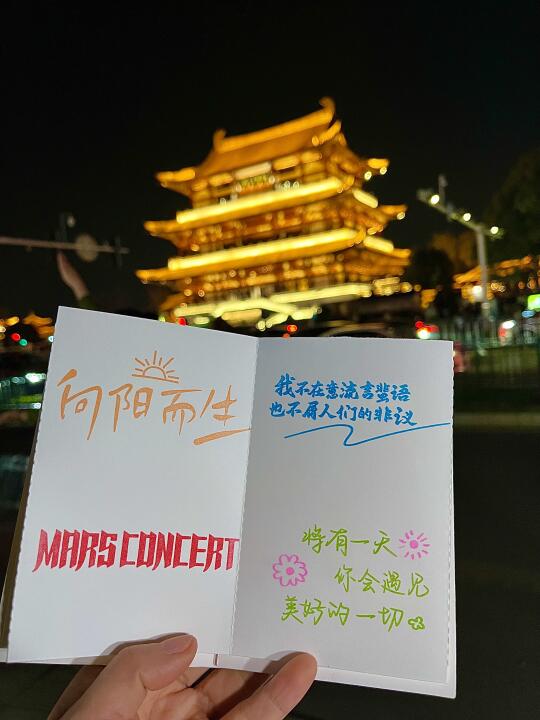 向阳而生
MARS CONCERT
我不在意流言蜚语
也不屑人们的非议
将有一天
你会遇见
美好的一切